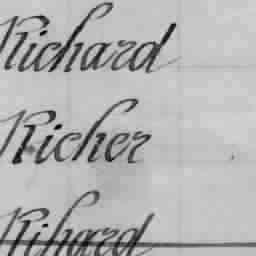 Richard
Richer
Rihard